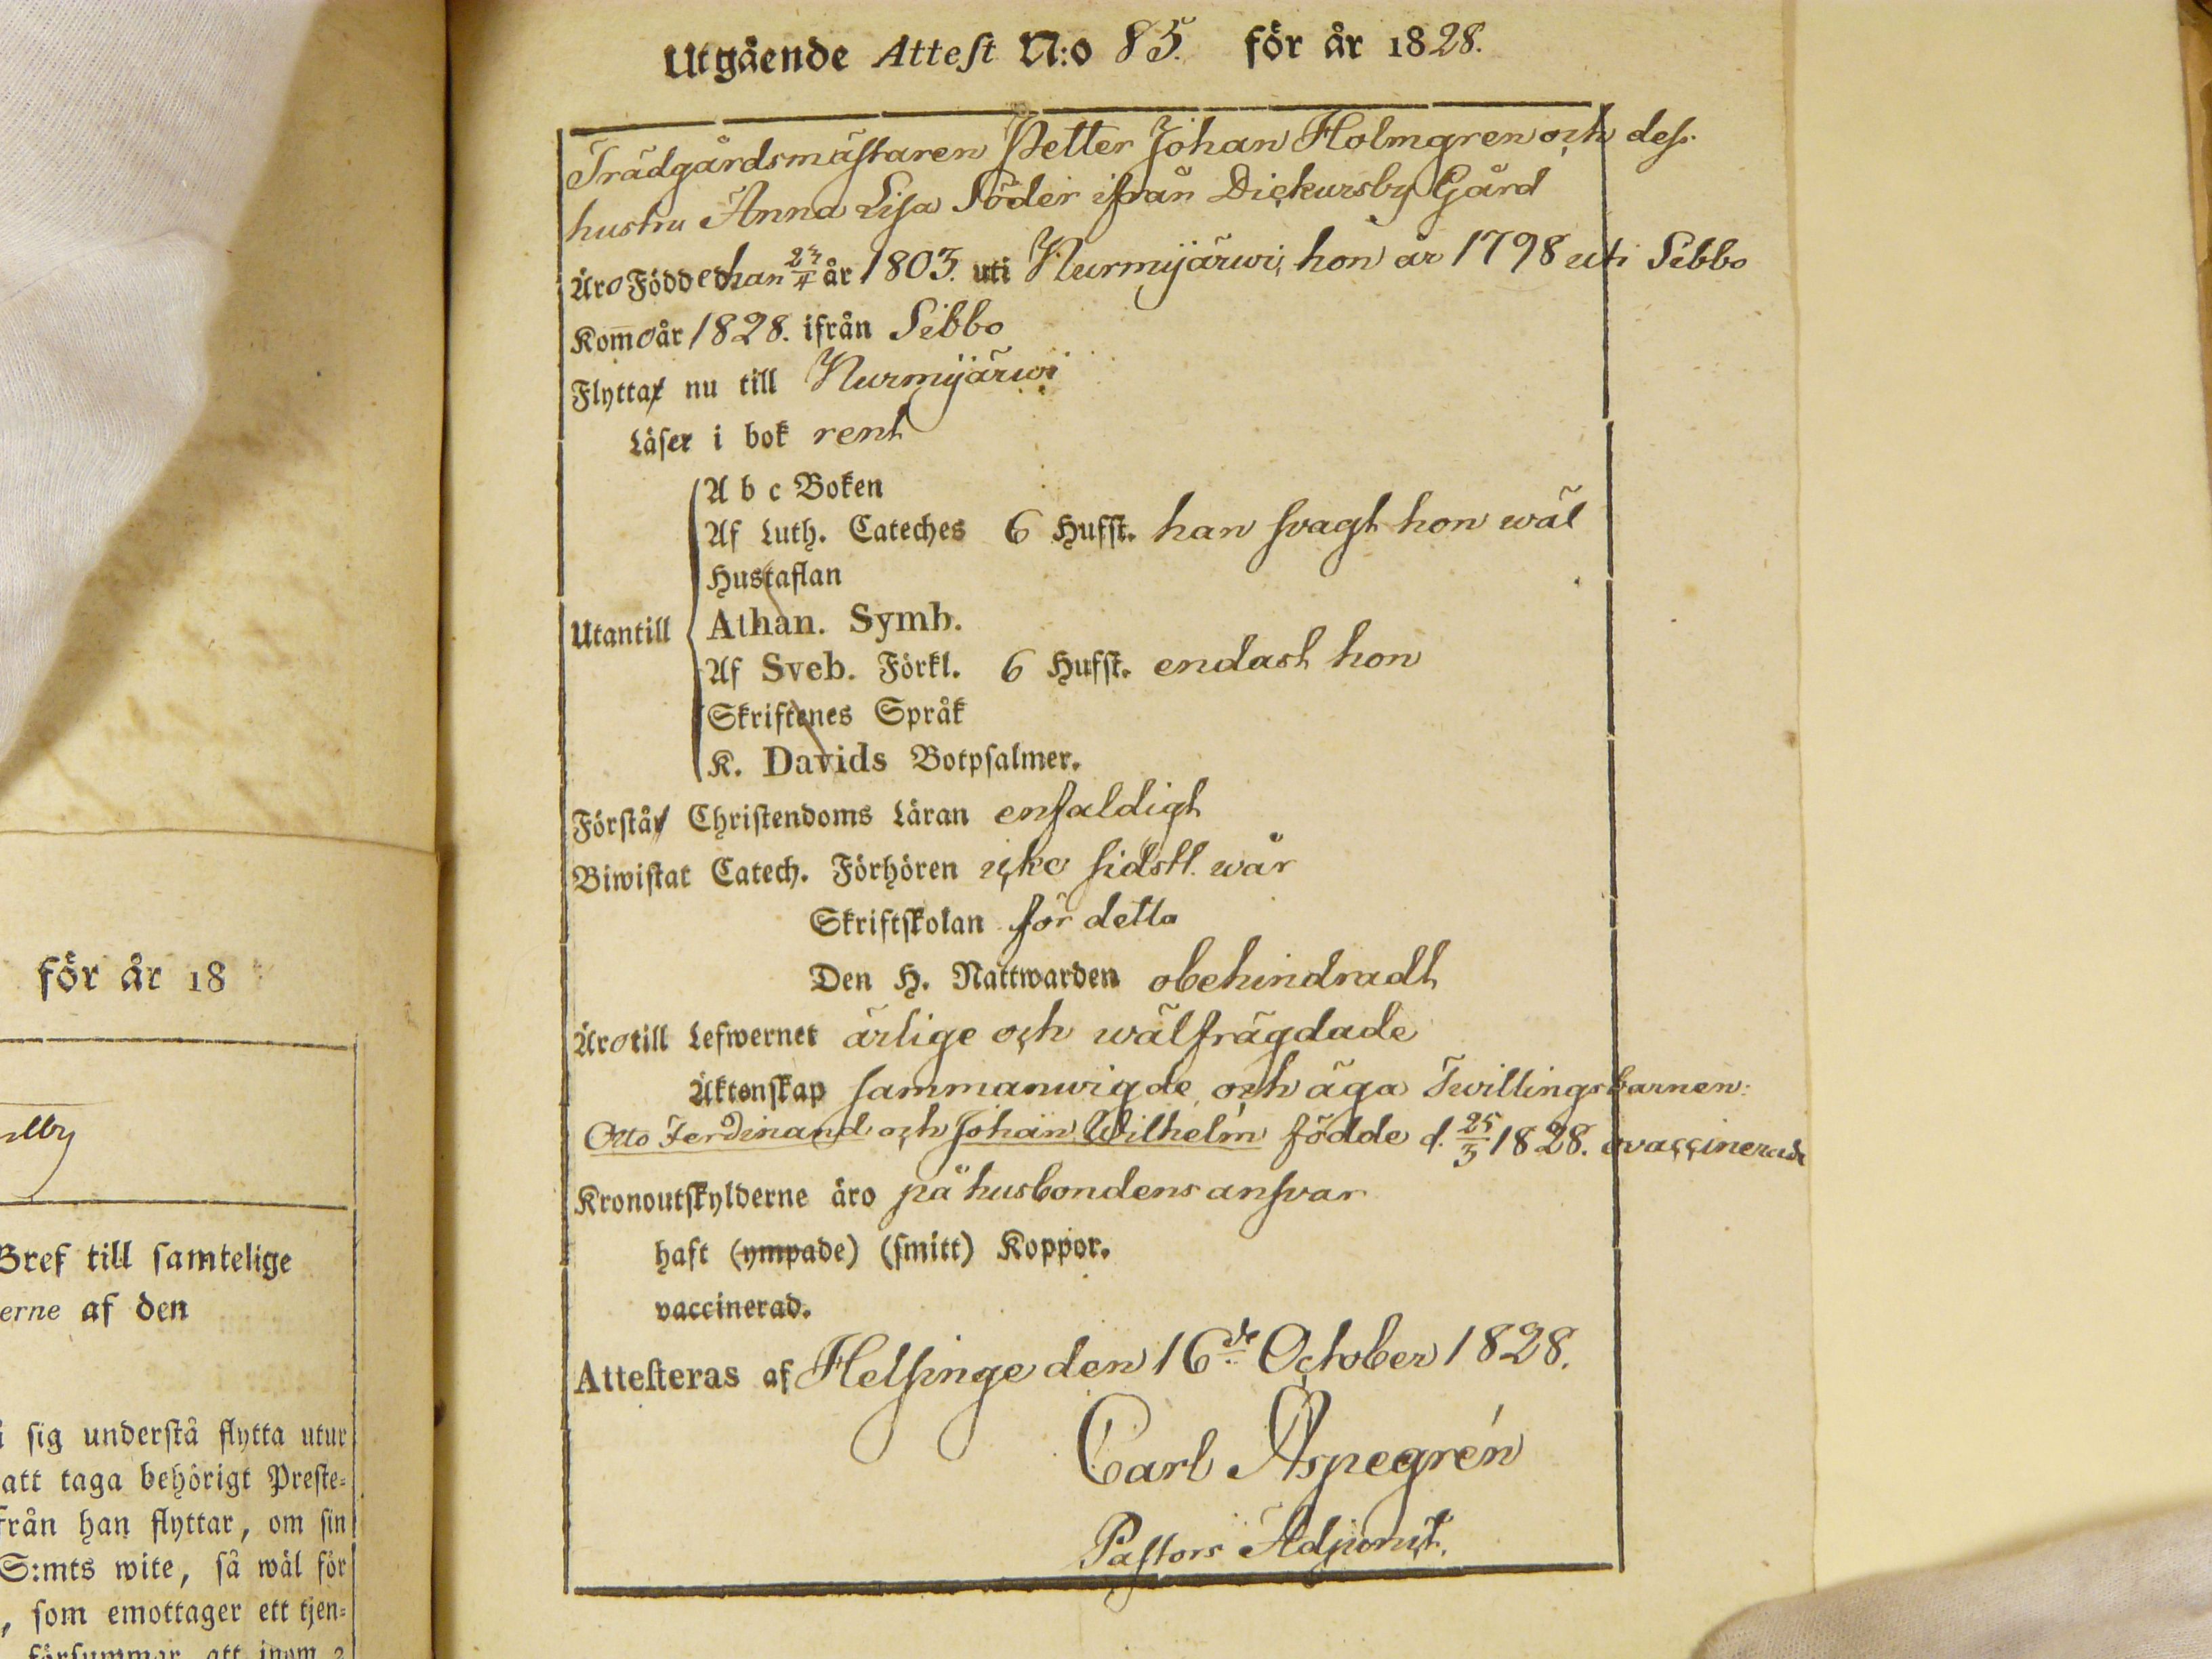 Utgående Attest N:o 85. för år 1828.
Trädgårdsmästaren Petter Johan Holmgren och dess
hustru Anna Lisa Söder ifrån Dickursby Gård
Äro Födde han 23/4 år 1803. uti Nurmijärwi, hon år 1798 uti Sibbo
Kommo år 1828. ifrån Sibbo
Flytta nu till Nurmijärwi
Läser i bok rent
A b c Boken
Af Luth. Cateches 6 Hufst. han svagt hon wäl
Hustaflan
Utantill Athan. Symb.
Af Sveb. Förkl. 6 Hufst. endast hon
Skriftenes Språk
K. Davids Botpsalmer.
Förstå Christendoms Läran enfaldigt
Biwistat Catech. Förhören icke sidstl. wår
Skriftskolan för detta
Den H. Nattwarden obehindradt
Äro till Lefwernet ärlige och wälfrägdade
Äktenskap sammanwigde, och äga Twillingsbarnen:
Otto Ferdinand och Johan Wilhelm födde d. 25/3 1828. ovaccinerade
Kronoutskylderne äro på husbondens ansvar
haft (ympade) (smitt) Koppor.
vaccinerad.
Attesteras af Helsinge den 16de October 1828.
Carl Aspegrén
Pastors Adjunct.
för år 18
Bref till samtelige
erne af den
i sig understå flytta utur
att taga behörigt Preste-
från han flyttar, om sin
S:mts wite, så wäl för
, som emottager ett tjen-
försummar att inom 2